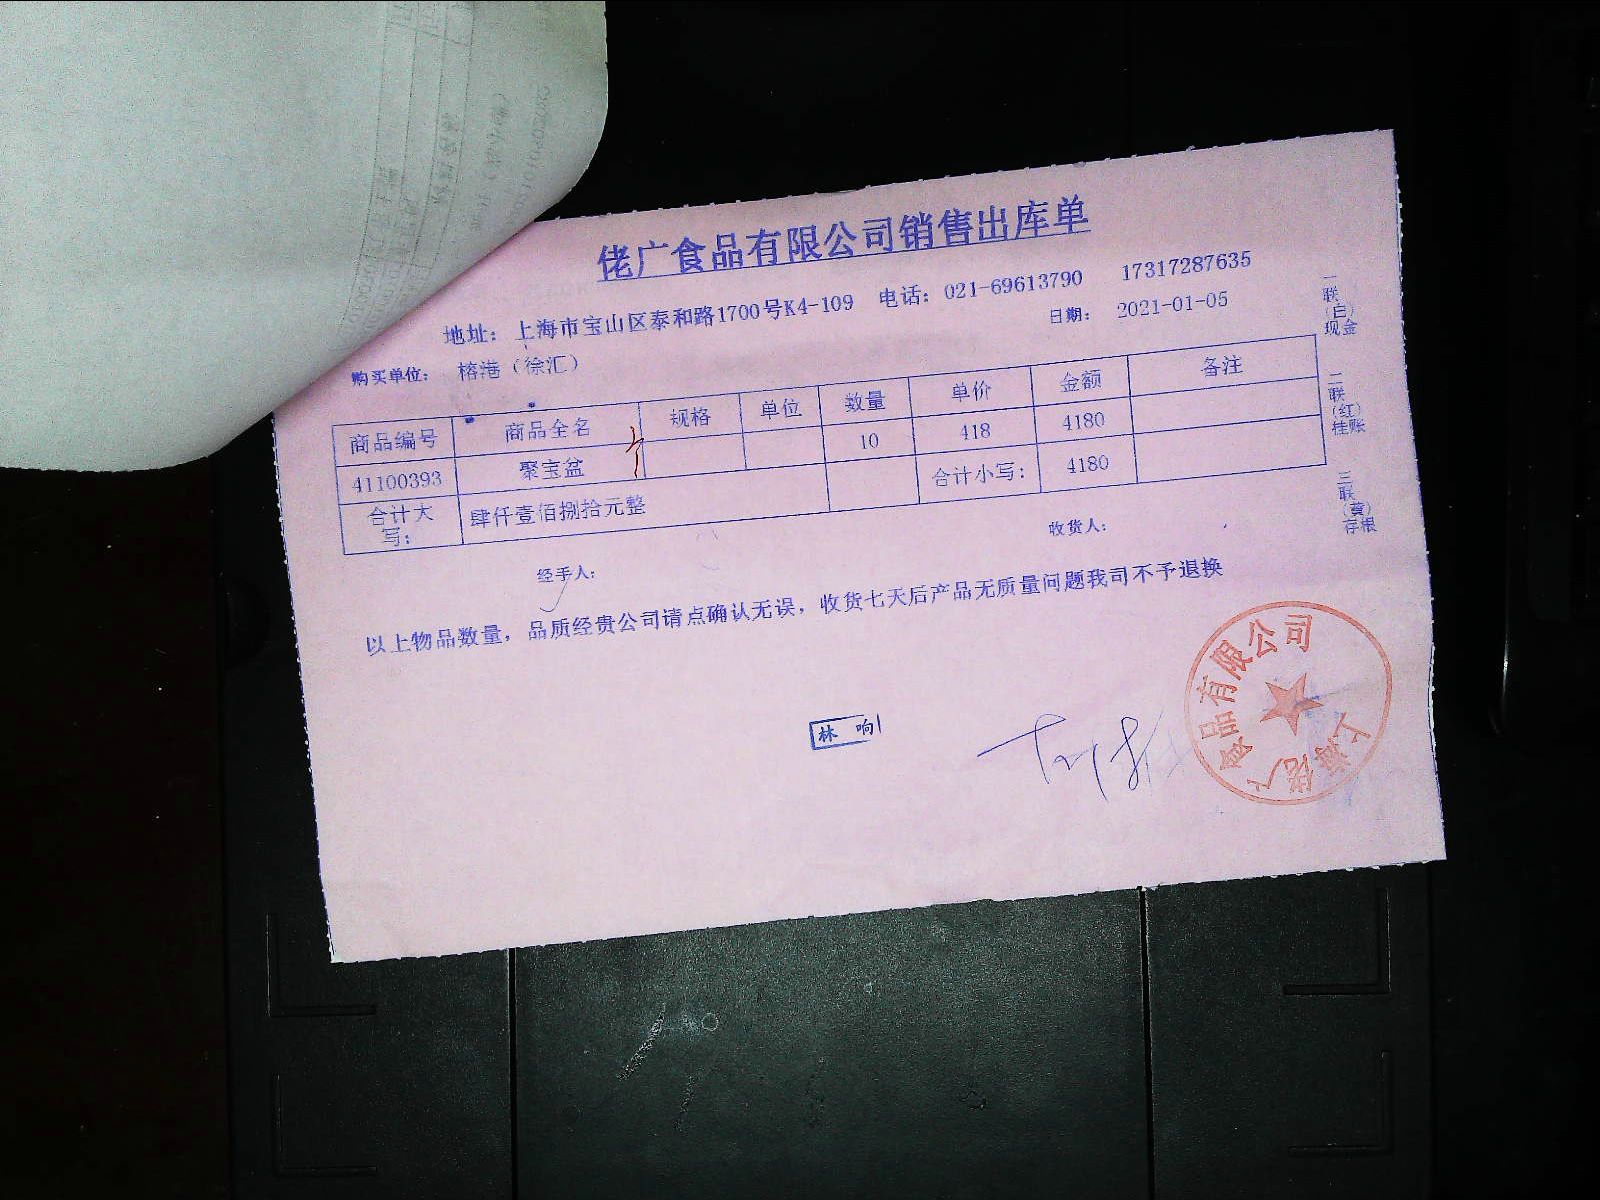 佬广食品有限公司销售出库单
地址：上海市宝山区泰和路1700号K4-109 电话：021-69613790 17317287635
购买单位： 榕港（徐汇） 日期： 2021-01-05
商品编号 商品全名 规格 单位 数量 单价 金额 备注
41100393 聚宝盆 10 418 4180
合计大写： 肆仟壹佰捌拾元整 合计小写： 4180
经手人： 收货人：
以上物品数量，品质经贵公司请点确认无误，收货七天后产品无质量问题我司不予退换
一联（白）现金
二联（红）挂账
三联（黄）存根
林响
上海佬广食品有限公司